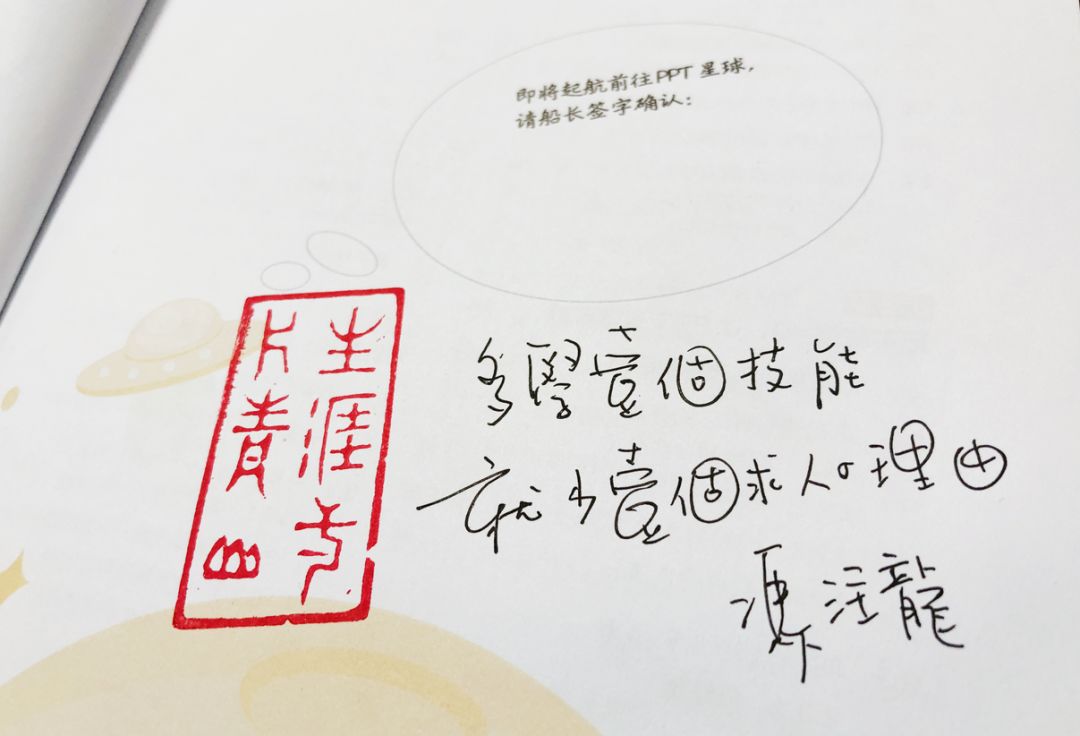 即将起航前往PPT 星球,
请船长签字确认:
生涯
片青山
多學壹個技能
就少壹個求人の理由
馮注龍